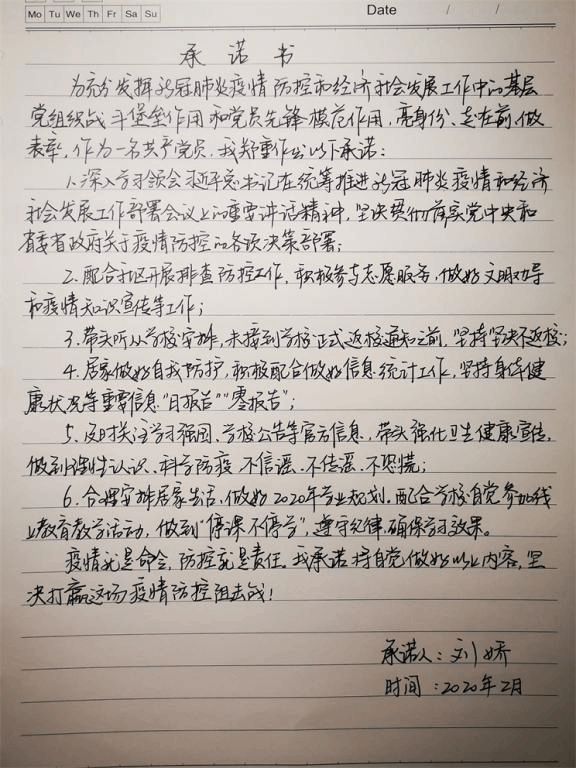 Mo Tu We Th Fr Sa Su Date / /
承诺书
为充分发挥新冠肺炎疫情防控和经济社会发展工作中的基层
党组织战斗堡垒作用和党员先锋模范作用，亮身份、走在前、做
表率，作为一名共产党员，我郑重作出以下承诺：
1.深入学习领会习近平总书记在统筹推进新冠肺炎疫情和经济
社会发展工作部署会议上的重要讲话精神，坚决贯彻落实党中央和
省委省政府关于疫情防控的各项决策部署；
2.配合社区开展排查防控工作，积极参与志愿服务，做好文明劝导
和疫情知识宣传等工作；
3.带头听从学校安排，未接到学校正式返校通知之前，坚持坚决不返校；
4.居家做好自我防护，积极配合做好信息统计工作，坚持身体健
康状况等重要信息“日报告”“零报告”；
5.及时关注学习强国、学校公告等官方信息，带头强化卫生健康宣传，
做到理性认识、科学防疫、不信谣、不传谣、不恐慌；
6.合理安排居家生活，做好2020年学业规划，配合学校自觉参加线
上教育教学活动，做到“停课不停学”，遵守纪律，确保学习效果。
疫情就是命令，防控就是责任。我承诺将自觉做好以上内容，坚
决打赢这场疫情防控阻击战！
承诺人：刘娇
时间：2020年2月